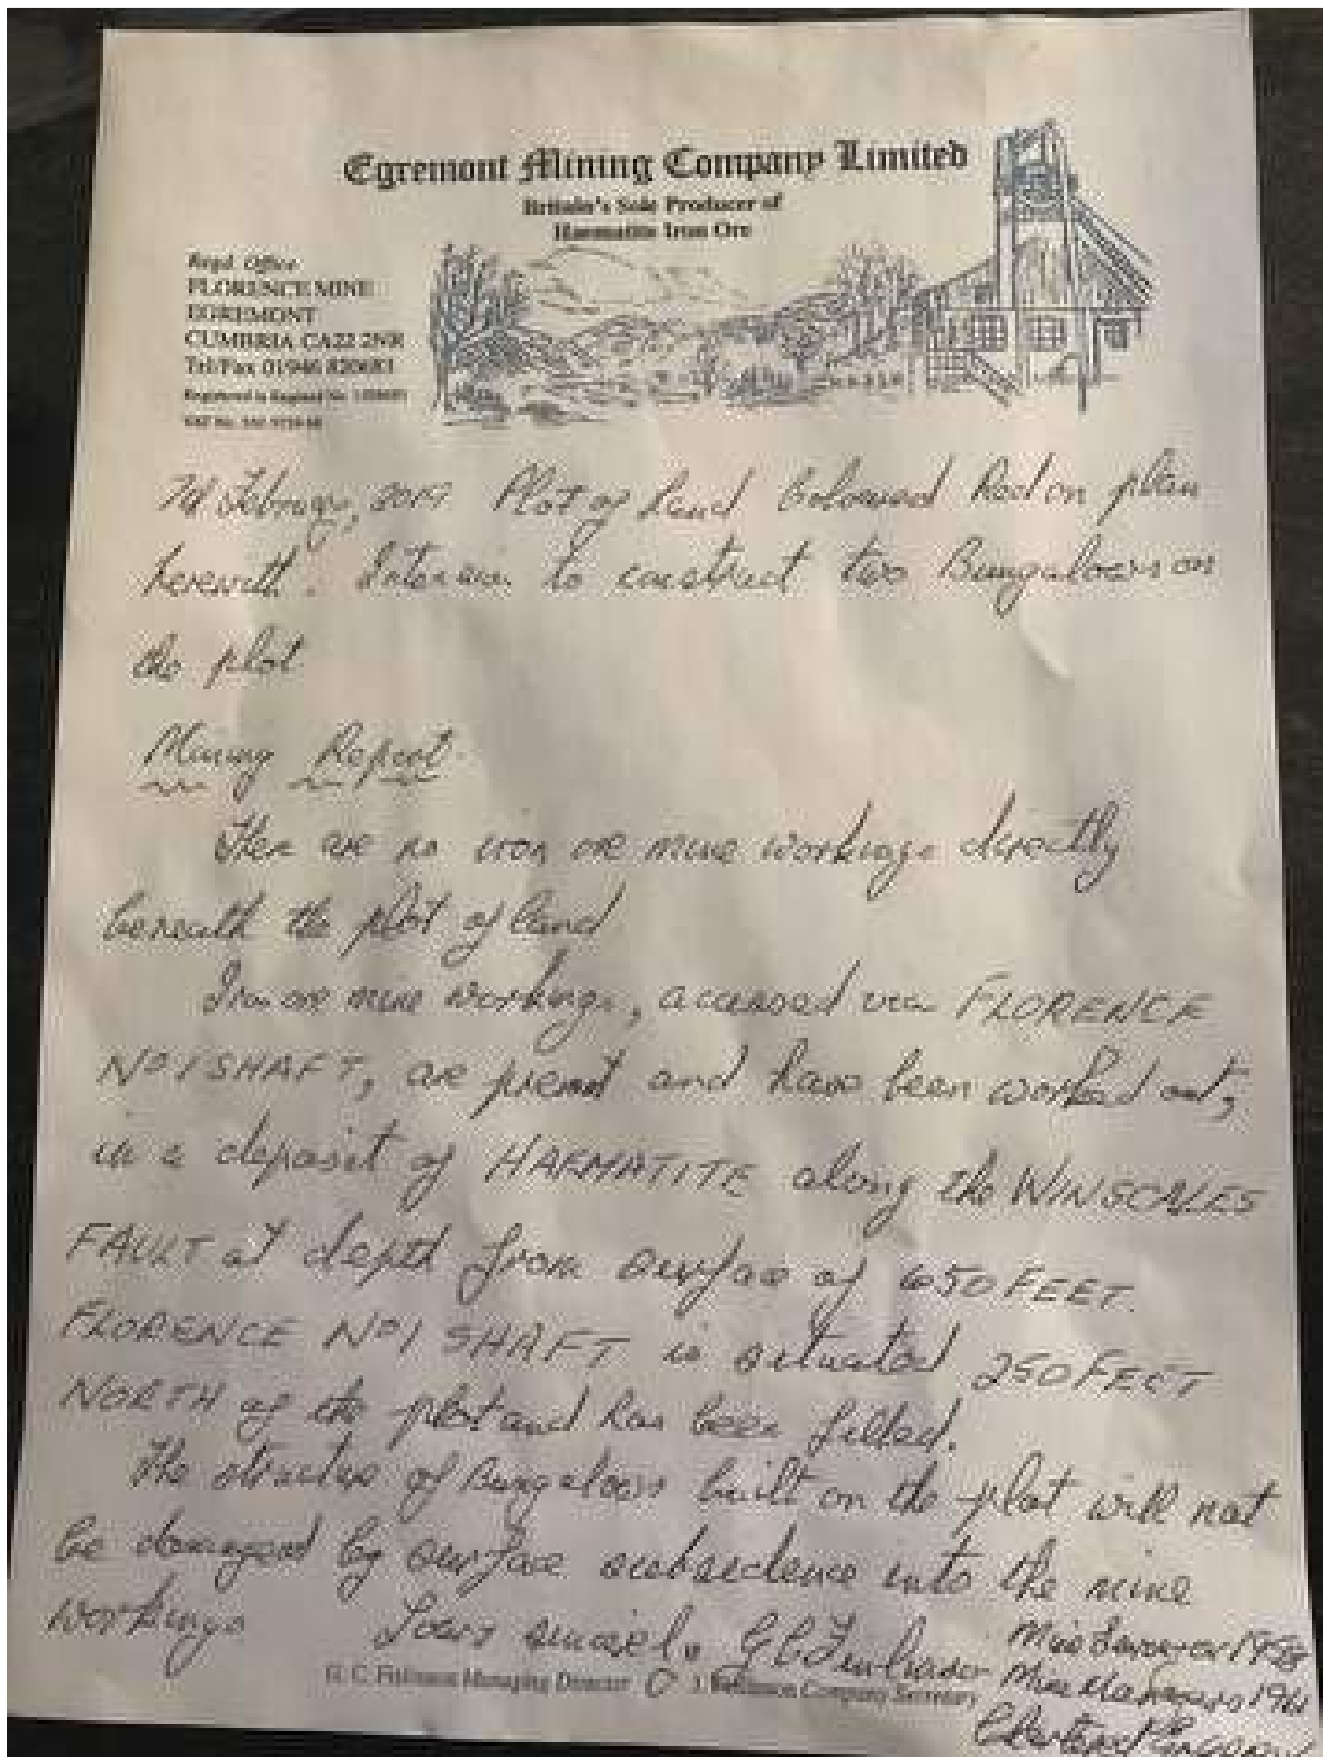 Egremont Mining Company Limited
Britain's Sole Producer of
Haematite Iron Ore
Regd. Office
FLORENCE MINE
EGREMONT
CUMBRIA CA22 2NR
Tel/Fax 01946 820683
Registered in England No.
VAT No.
February, 2017 Plot of Land Coloured Red on plan
herewith. Intention to construct two Bungalows on
the plot
Mining Report
There are no iron ore mine workings directly
beneath the plot of land
Iron ore mine workings, accessed via FLORENCE
Nº1 SHAFT, are present and have been worked out,
in a deposit of HAEMATITE along the WINSCALES
FAULT at depth from surface of 650 FEET.
FLORENCE Nº1 SHAFT is situated 250 FEET
NORTH of the plot and has been filled.
The structure of Bungalows built on the plot will not
be damaged by surface subsidence into the mine
workings
Yours sincerely
Mine Surveyor 1958
G. C. Finlinson Managing Director J. Finlinson Company Secretary
Mine Manager 1961
Chartered Engineer